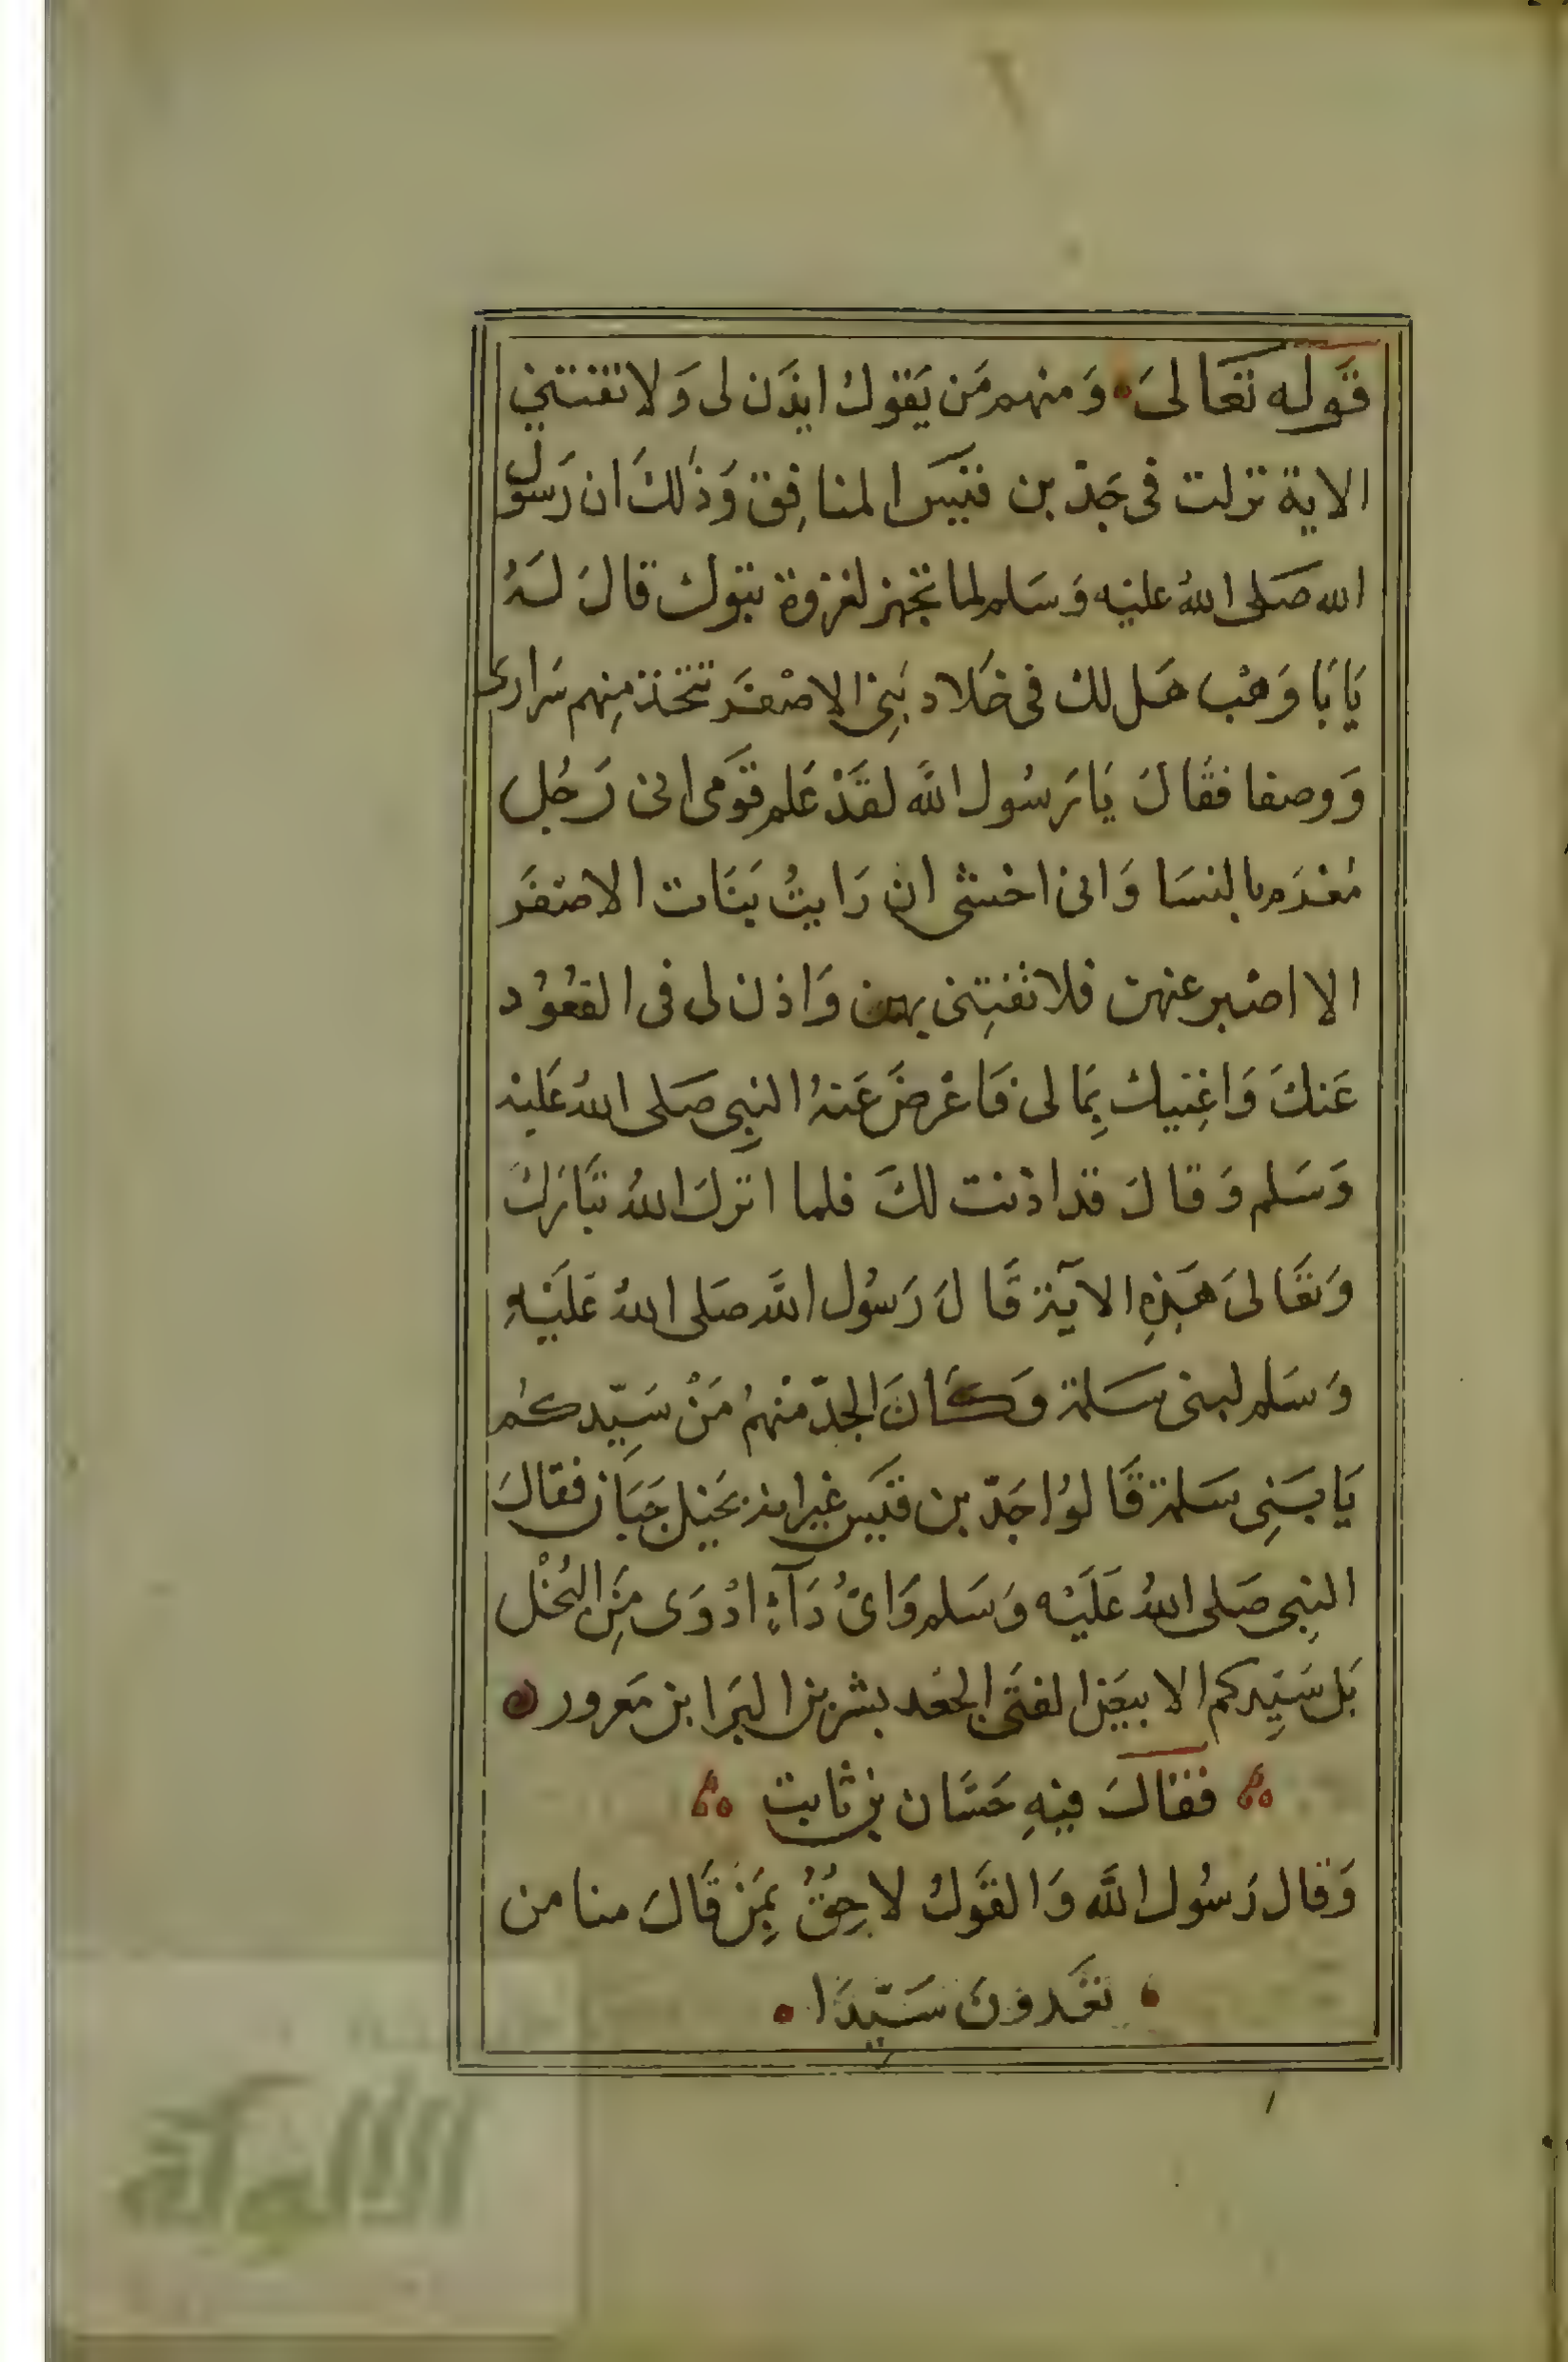 قَوله تعَالىَ وَمنهم مَن يَقول ايذَن لى وَلا تفتني
الاية نزلت فى جَدّ بن قيَس المنافِق وَذلكَ ان رَسول
الله صَلى اللهُ عليْه وَسَلم لما تجهز لغزوة تبوك قالَ لهُ
يَابَا وَهْب هَل لك فى جَلاد بَنِى الاصْفَر تتخذ مِنهم سَرارى
وَوصفا فقالَ يَا رَسُول اللَّه لقَدْ عَلم قَومى انى رَجُل
مُغرَم بالنسَا وَانى اخشى ان رَايتُ بَنَات الاصْفَر
الا اصْبر عنهن فلا تفتِنى بهن وَاذن لى فى القعُود
عَنكَ وَاعِنيك بِمَالى فَاعْرضَ عَنهُ النبِى صَلى اللهُ عَليْه
وَسَلم وَقالَ قد اذنت لكَ فلما انزلَ اللهُ تبَارَكَ
وَتعَالىَ هَذِهِ الآيَة قَالَ رَسُول اللَّه صَلى اللهُ عَلَيْهِ
وَسَلم لبنى سَلمة وَكَانَ الجدّ مْنهمُ مَنْ سَيِّدكُم
يَا بَنِى سَلمة قَالوُا جَدّ بن قيَس غيرانه بخَيل جَبَان فقالَ
النبِى صَلى اللهُ عَلَيْه وَسَلم وَاىُّ دَآءٍ ادْوَى مِنَ البُخْل
بَل سَيِّدكم الابيَض الفتَى الجعْد بشر بن البَرا بن مَعرور
فقالَ فيهِ حَسَّان بن ثابت
وَقال رَسُول اللَّه وَالقَولُ لاحِقُ بِمَنْ قَالَ منا من
تعَدونَ سَيّدَا
الألوكة